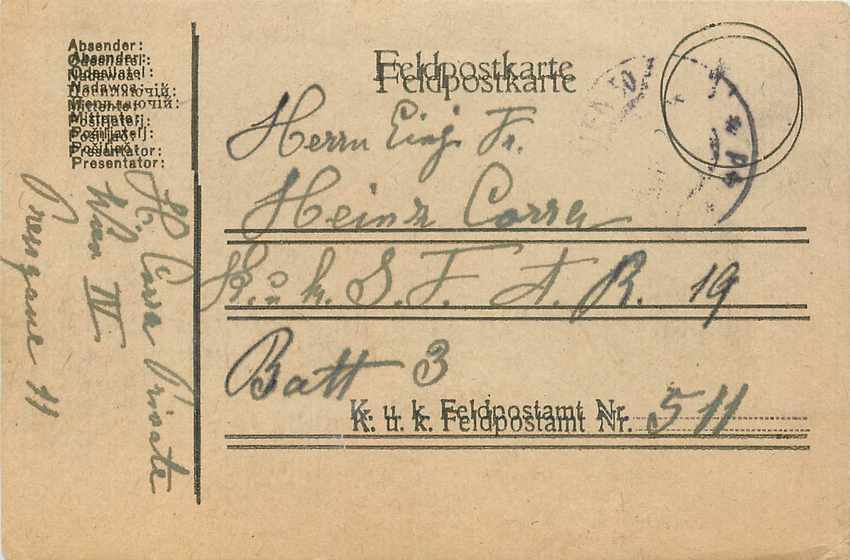 Absender:
Odesílatel:
Nadawca:
Mittente:
Pošiljatelj:
Pošiljač:
Presentator:
Feldpostkarte
Herrn Einj. Fr.
Heinz
K. u. k. S. F. A. R. 19
Batt 3
K. u. k. Feldpostamt Nr. 511
H. Private
Wien IV
Pressgasse 11